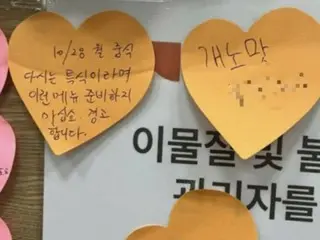 10/28 월 중식
다시는 특식이라며
이런메뉴 준비하지
마십쇼 경고
합니다.
개노맛
이물질 및 불
관리자를